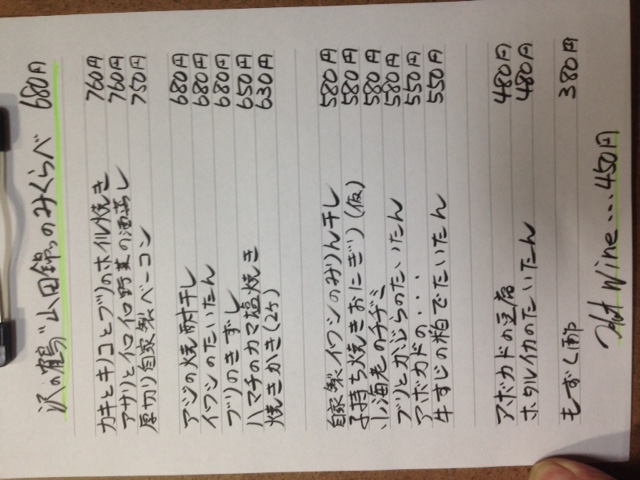 沢の鶴"山田錦"のみくらべ 680円
カキとキノコとブリのホイル焼き 760円
アサリとイロイロ野菜の酒蒸し 760円
厚切り自家製ベーコン 750円
アジの焼酎干し 680円
イワシのたいたん 680円
ブリのきずし 680円
ハマチのカマ塩焼き 650円
焼きかき(2ケ) 630円
自家製イワシのみりん干し 580円
子持ち焼きおにぎり(仮) 580円
小海老のチヂミ 580円
ブリとかぶらのたいたん 580円
アボカドの・・・ 550円
牛すじの粕でたいたん 550円
アボカドの豆腐 480円
ホタルイカのたいたん 480円
もずく酢 380円
Hot Wine...450円